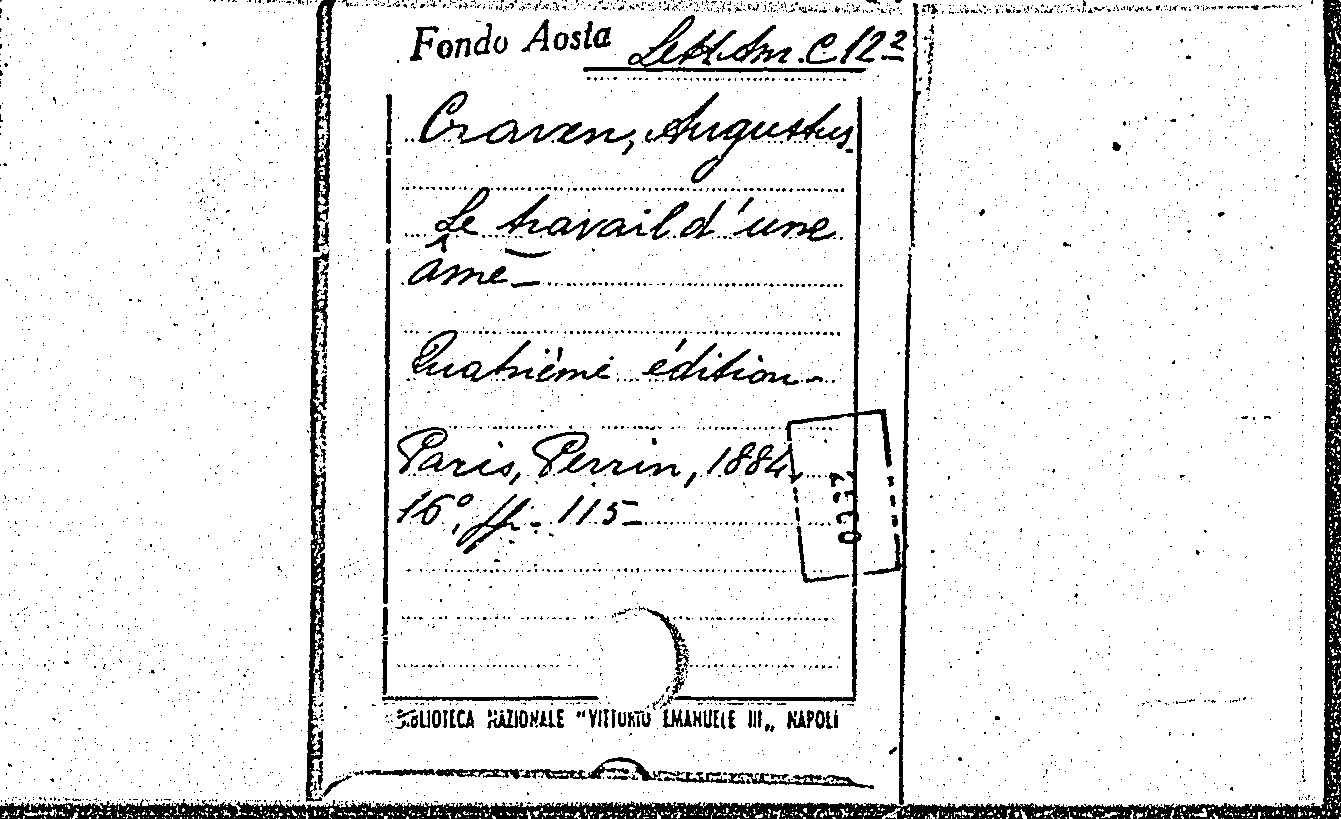 Fondo Aosta Lett. Am. C 12²
Craven, Augustus
Le travail d'une
âme -
Quatrième édition -
Paris, Perrin, 1884
16°, pp. 115 -
BIBLIOTECA NAZIONALE "VITTORIO EMANUELE III„ NAPOLI